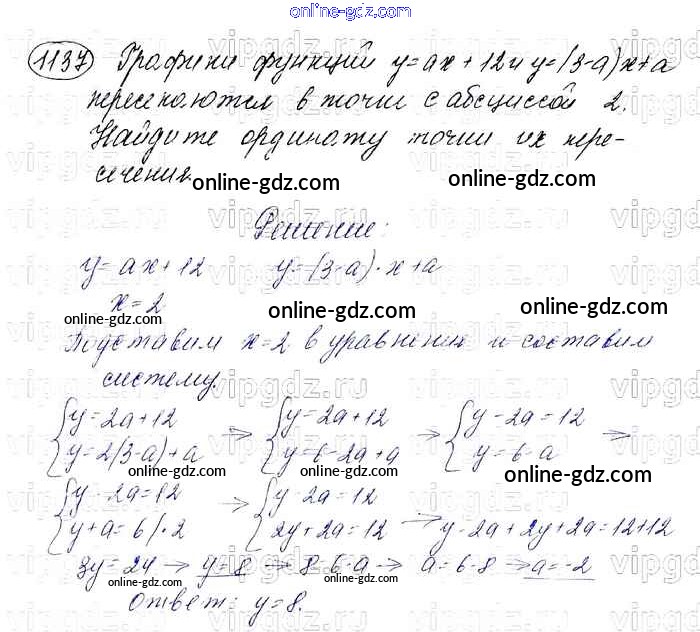 online-gdz.com
1137 Графики функций y=ax+12 и y=(3-a)x+a
пересекаются в точки с абсциссой 2.
Найдите ординату точки их пере-
сечения.
online-gdz.com online-gdz.com
Решение:
y=ax+12 y=(3-a)·x+a
x=2
online-gdz.com online-gdz.com online-gdz.com
Подставим x=2 в уравнения и составим
систему.
{y=2a+12 → {y=2a+12 → {y-2a=12 →
{y=2(3-a)+a {y=6-2a+a {y=6-a
online-gdz.com online-gdz.com online-gdz.com
{y-2a=12 → {y 2a=12
{y+a=6 |·2 {2y+2a=12 → y-2a+2y+2a=12+12
3y=24 → y=8 → 8=6-a → a=6-8 → a=-2
online-gdz.com online-gdz.com online-gdz.com
Ответ: y=8.